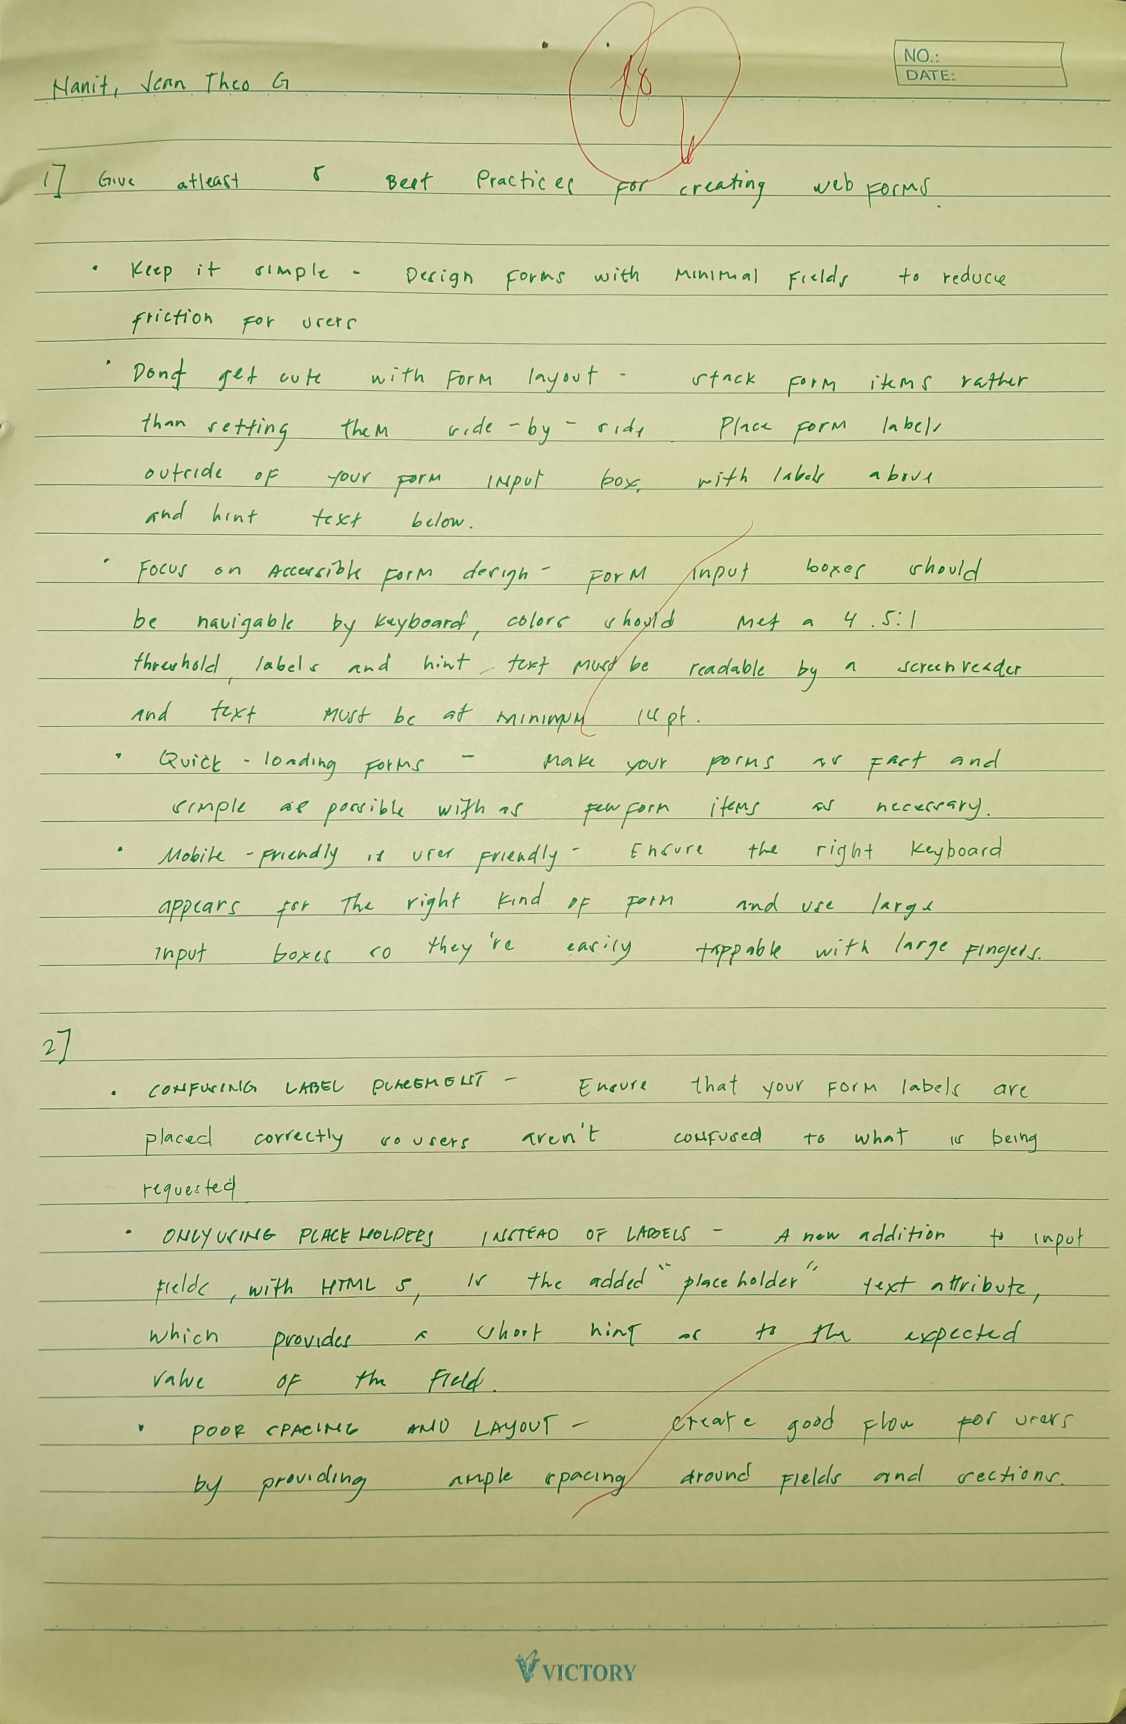 Nanit, Jean Theo G
18
NO.:
DATE:
1] Give atleast 5 Best Practices for creating web forms.
• Keep it simple - Design forms with minimal fields to reduce
friction for users
• Dont get cute with form layout - stack form items rather
than setting them side-by-side. Place form labels
outside of your form input box, with labels above
and hint text below.
• Focus on Accessible form design - form input boxes should
be navigable by keyboard, colors should met a 4.5:1
threshold, labels and hint text must be readable by a screenreader
and text must be at minimum 14pt.
• Quick-loading forms - make your forms as fast and
simple as possible with as few form items as necessary.
• Mobile-friendly is user friendly - Ensure the right keyboard
appears for the right kind of form and use large
input boxes so they're easily tappable with large fingers.
2]
• CONFUSING LABEL PLACEMENT - Ensure that your form labels are
placed correctly so users aren't confused to what is being
requested
• ONLY USING PLACEHOLDERS INSTEAD OF LABELS - A new addition to input
fields, with HTML 5, is the added "placeholder" text attribute,
which provides a short hint as to the expected
value of the field.
• POOR SPACING AND LAYOUT - create good flow for users
by providing ample spacing around fields and sections.
VICTORY